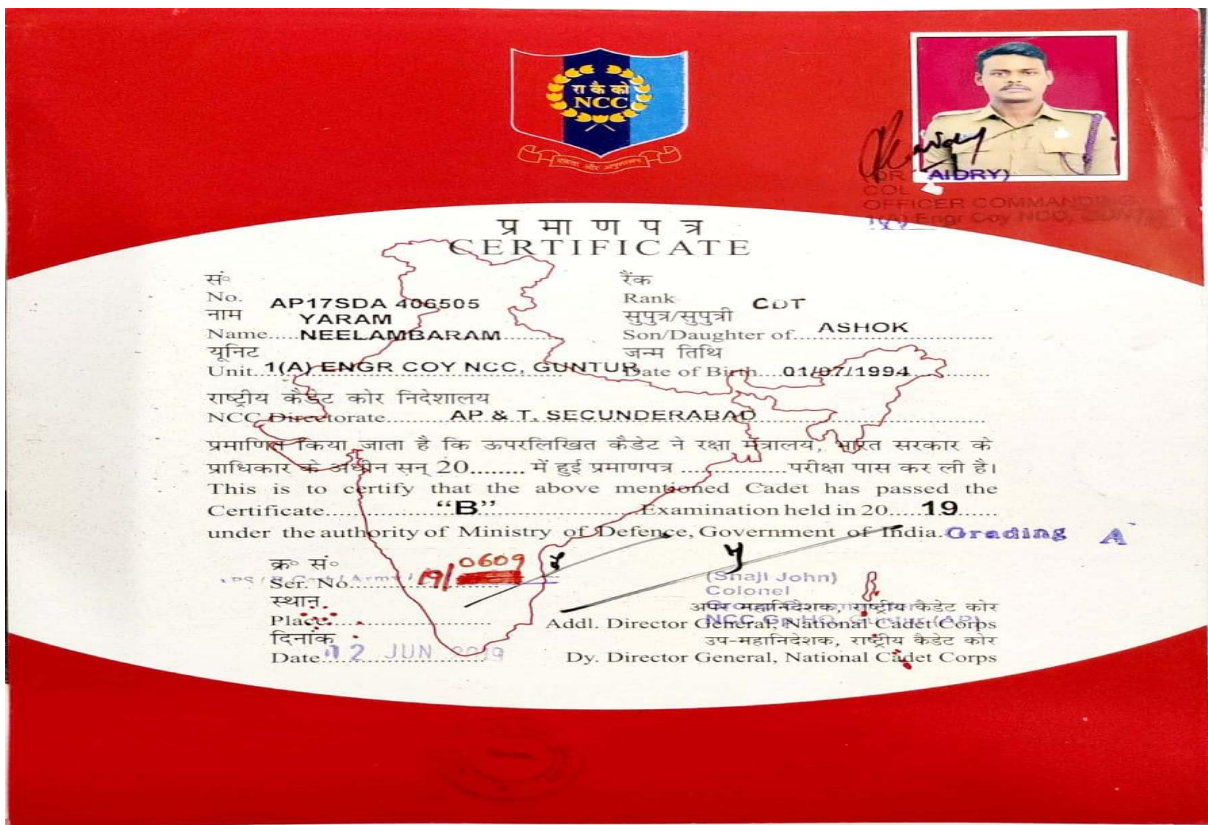 रा कै को
NCC
एकता और अनुशासन
AIDRY)
COL
OFFICER COMMANDING
1(A) Engr Coy NCC, GUNTUR
प्र मा ण प त्र
CERTIFICATE
सं० रैंक
No. AP17SDA 406505 Rank CDT
नाम सुपुत्र/सुपुत्री
YARAM
Name..... NEELAMBARAM Son/Daughter of ASHOK
यूनिट जन्म तिथि
Unit. 1(A) ENGR COY NCC, GUNTUR Date of Birth 01/07/1994
राष्ट्रीय कैडेट कोर निदेशालय
NCC Directorate AP & T, SECUNDERABAD
प्रमाणित किया जाता है कि ऊपरलिखित कैडेट ने रक्षा मंत्रालय, भारत सरकार के
प्राधिकार के अधीन सन् 20........ में हुई प्रमाणपत्र ................परीक्षा पास कर ली है।
This is to certify that the above mentioned Cadet has passed the
Certificate "B" Examination held in 20 19
under the authority of Ministry of Defence, Government of India. Grading A
क्र० सं०
Ser. No. 19/ 0609
(Shaji John)
Colonel
स्थान
अपर महानिदेशक, राष्ट्रीय कैडेट कोर
Place Addl. Director General, National Cadet Corps
दिनांक उप-महानिदेशक, राष्ट्रीय कैडेट कोर
Date 12 JUN 2019 Dy. Director General, National Cadet Corps